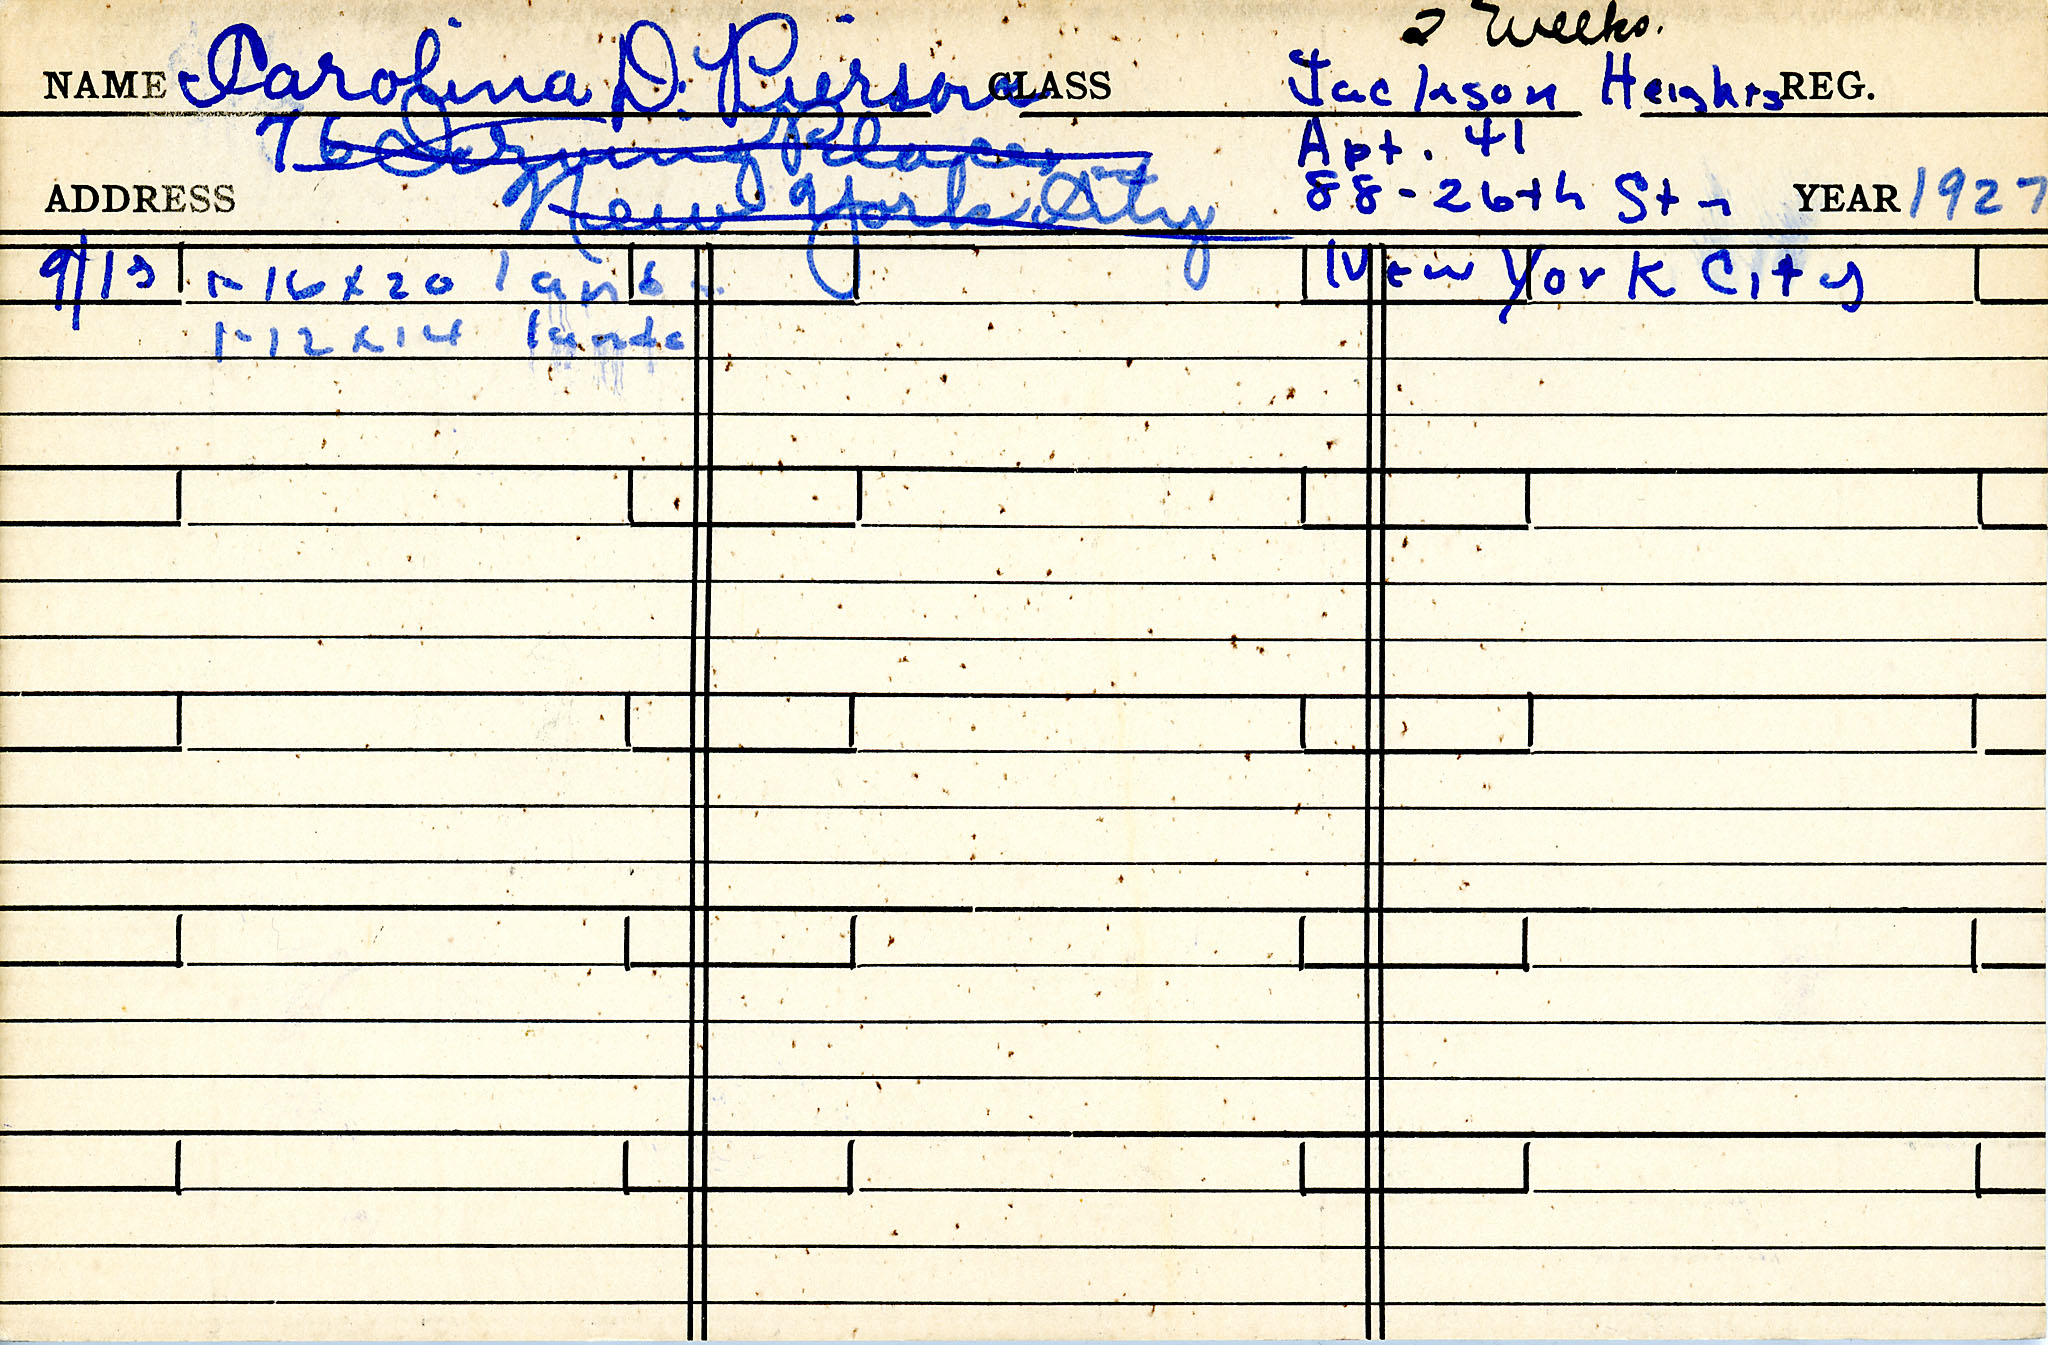 2 Weeks.
NAME Carolina D. Pierson CLASS Jackson Heights REG.
76 Irving Place, Apt. 41
ADDRESS New York City 88-26th St- YEAR 1927
9/13 1-16x20 lands New York City
1-12x14 lands